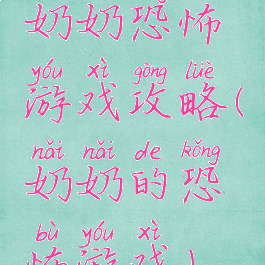 奶奶恐怖
yóu xì gōng lüè
游戏攻略(
nǎi nǎi de kǒng
奶奶的恐
bù yóu xì
怖游戏)